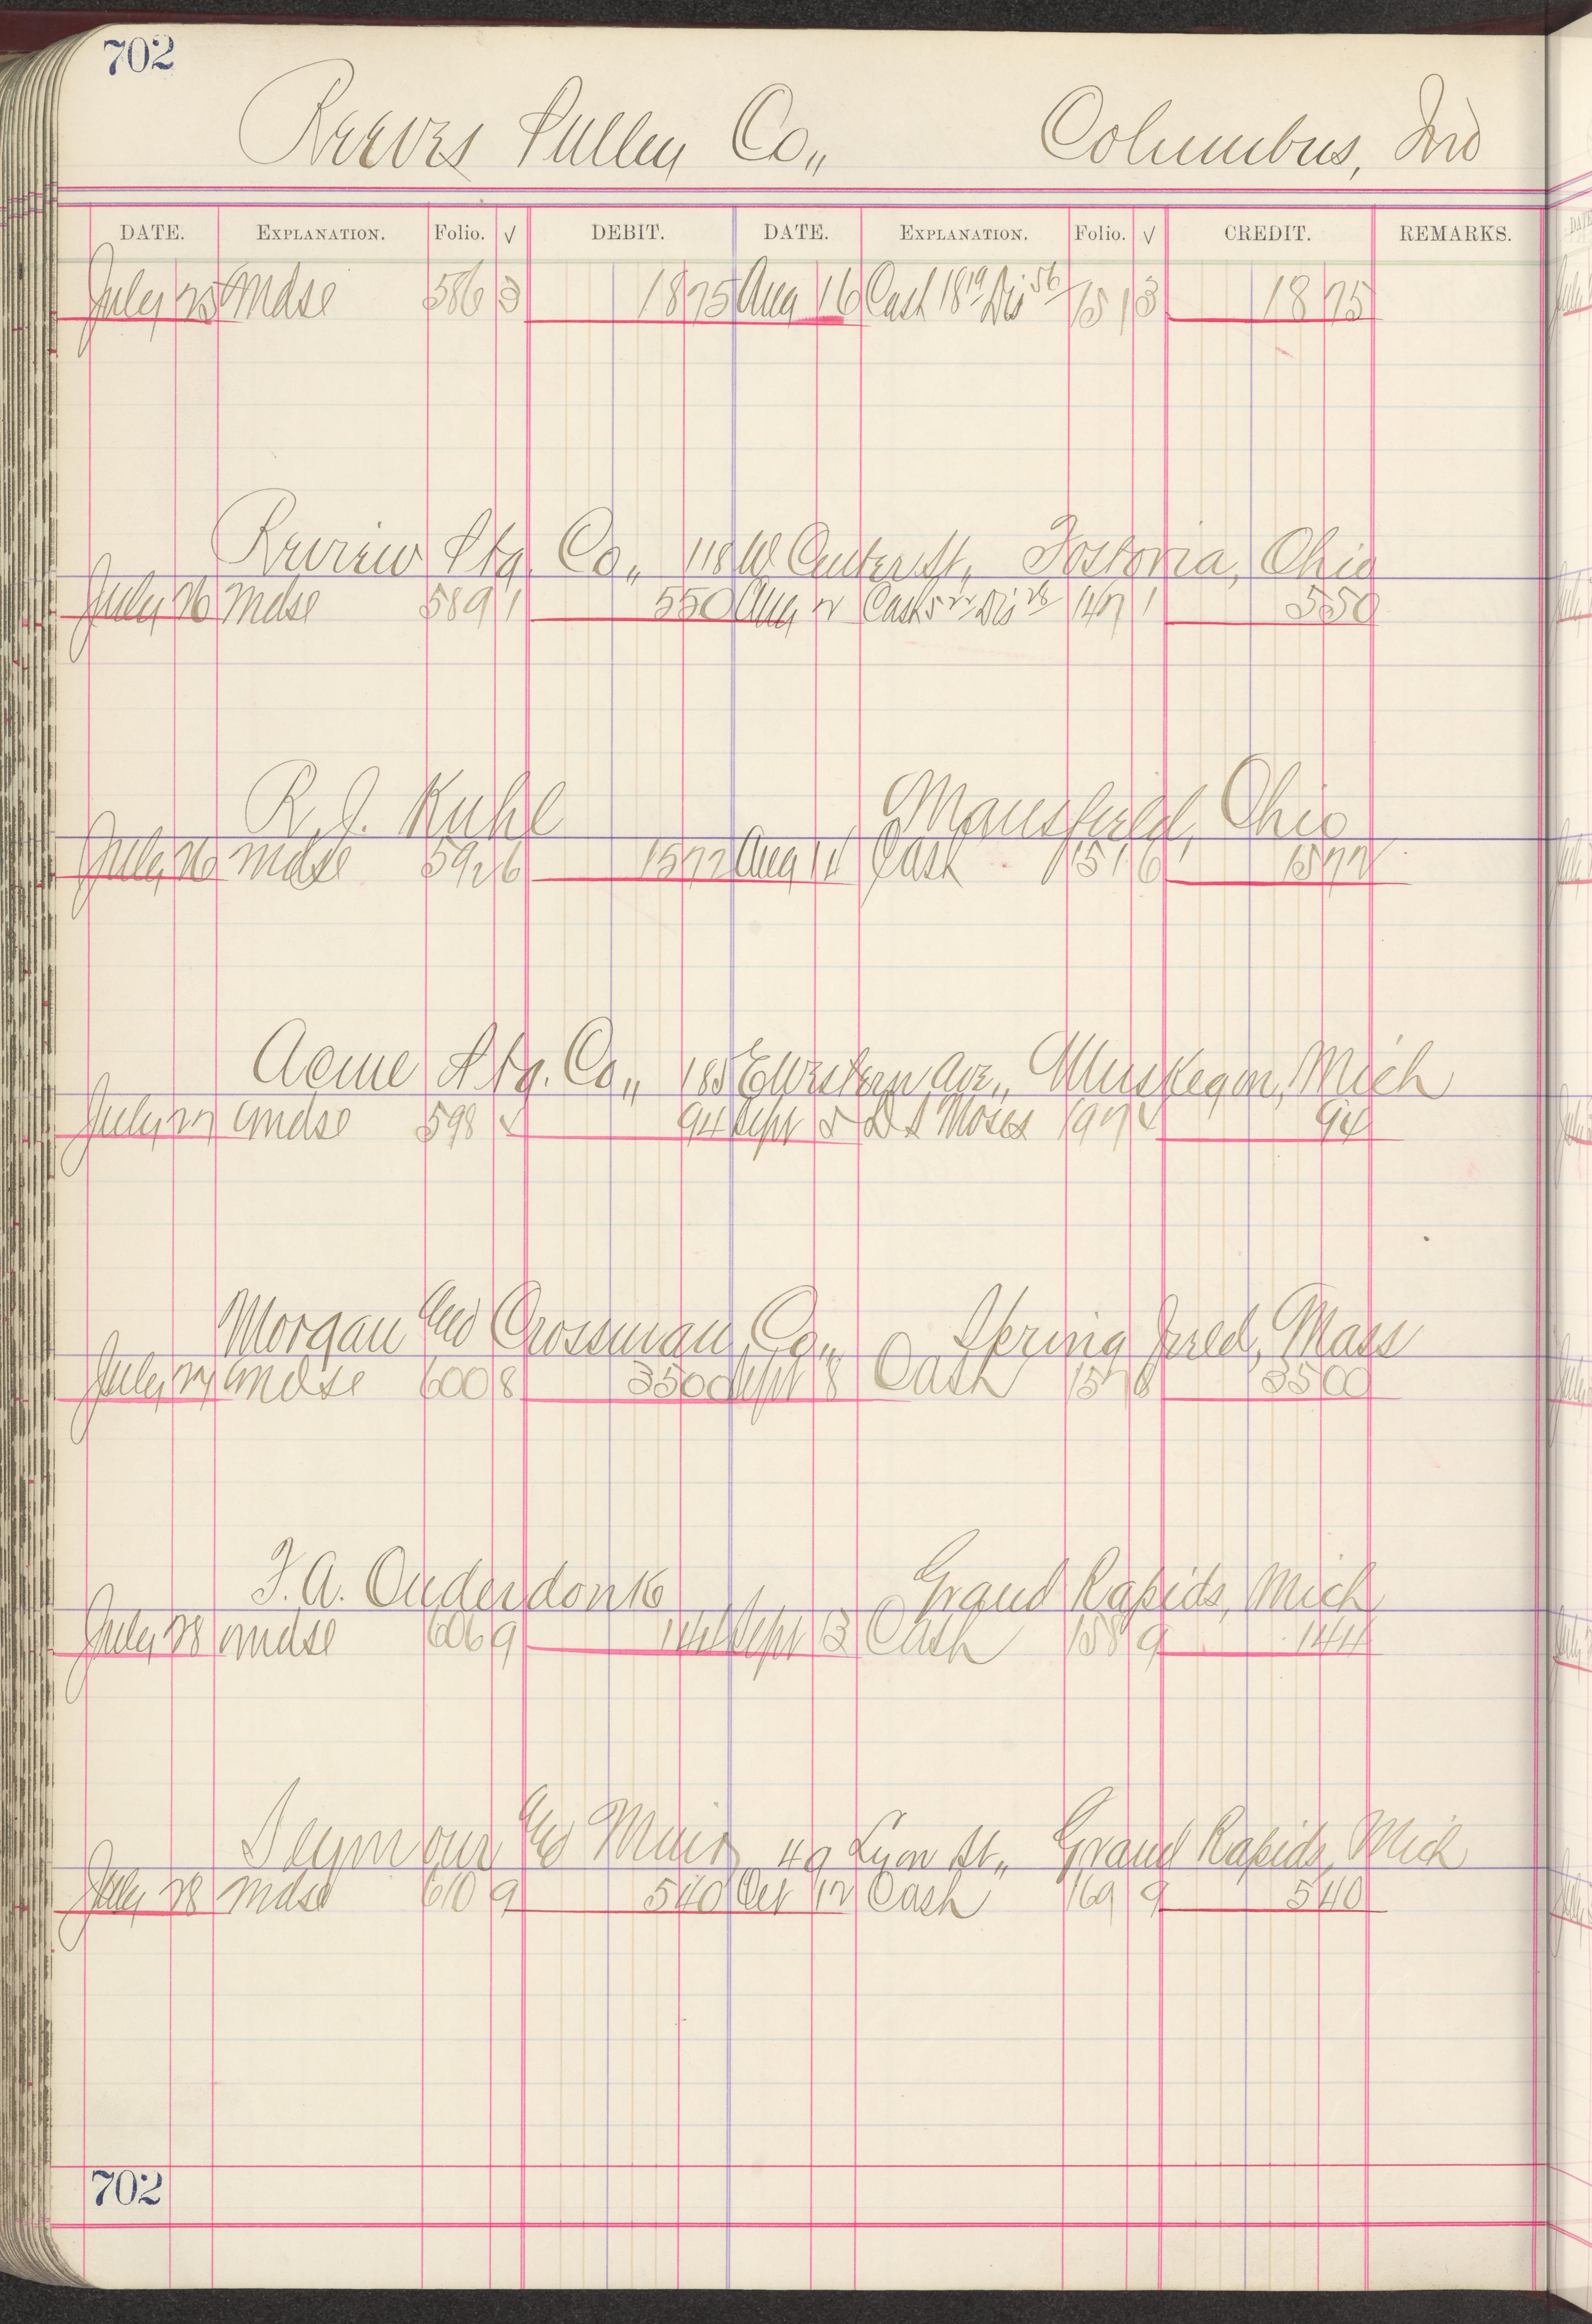 702
Reeves Pulley Co,, Columbus, Ind
DATE. EXPLANATION. Folio. √ DEBIT. DATE. EXPLANATION. Folio. √ CREDIT. REMARKS.
July 25 Mdse 586 3 18 75 Aug 16 Cash 18 19 Dis 56 151 3 18 75
Review Ptg. Co,, 118 W Center St, Fostoria, Ohio
July 26 Mdse 589 1 5 50 Aug 2 Cash 5 22 Dis 28 147 1 5 50
R. J. Kuhl Mansfield, Ohio
July 26 Mdse 592 6 Aug Cash 151 6
Acme Ptg. Co,, 185 E Western Ave,, Muskegon, Mich
July 27 Mdse 598 √ 94 Sept 5 D A Moses 197 √ 94
Morgan and Crossman Co,, Springfield, Mass
July 27 Mdse 600 8 35 00 Sept 8 Cash 157 8 35 00
F. A. Onderdonk Grand Rapids, Mich
July 28 Mdse 606 9 1 44 Sept 13 Cash 158 9 1 44
Seymour and Muir 49 Lyon St,, Grand Rapids, Mich
July 28 Mdse 610 9 5 40 Oct 12 Cash 169 9 5 40
702